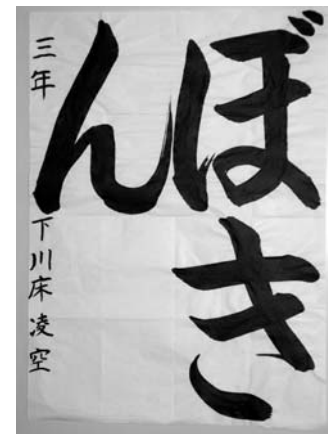 ぼき
ん
三年 下川床凌空